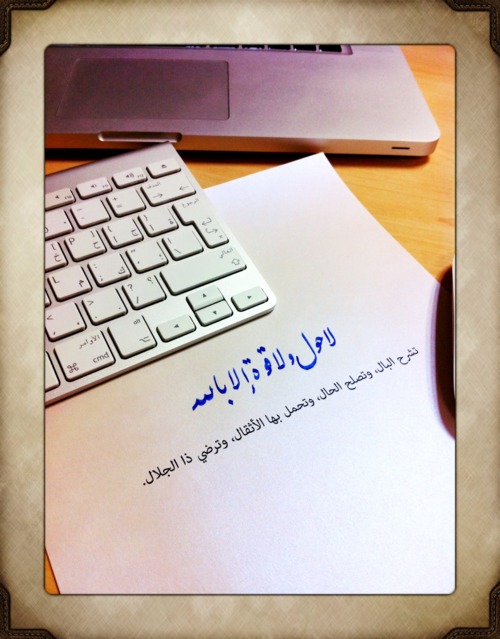 لا حول ولا قوة إلا بالله
تشرح البال، وتصلح الحال، وتحمل بها الأثقال، وترضي ذا الجلال.
cmd